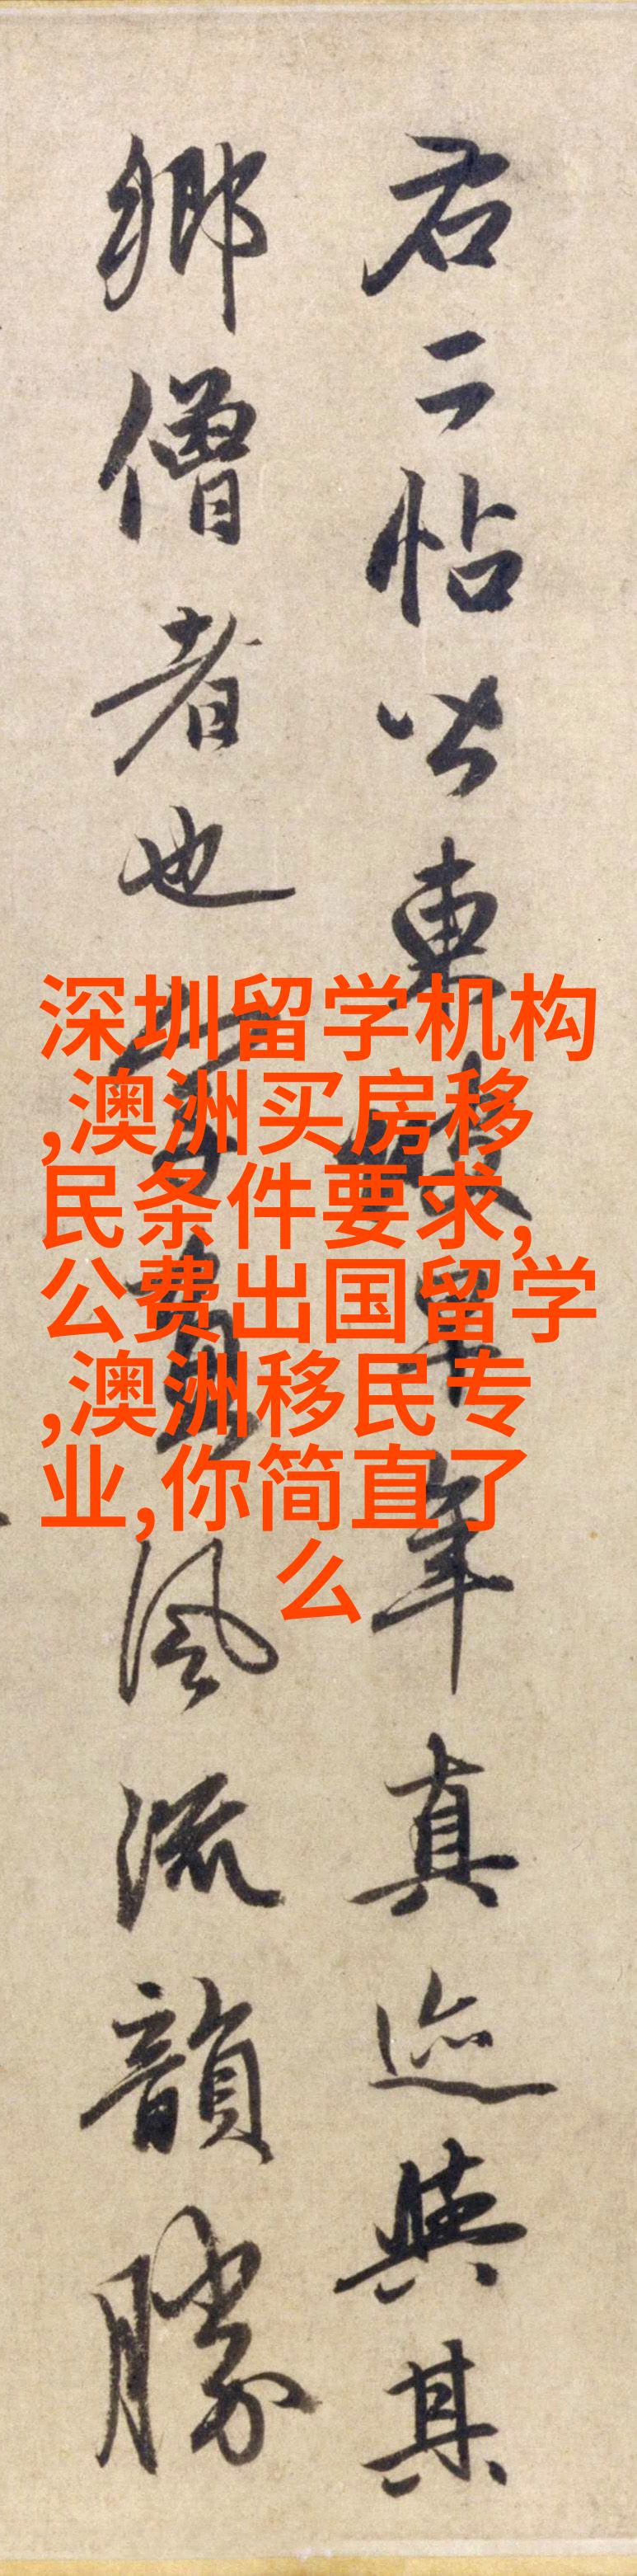 右二帖皆東坡早年真迹與其
鄉僧者也字畫風流韻勝
深圳留学机构
,澳洲买房移
民条件要求,
公费出国留学
,澳洲移民专
业,你简直了
么